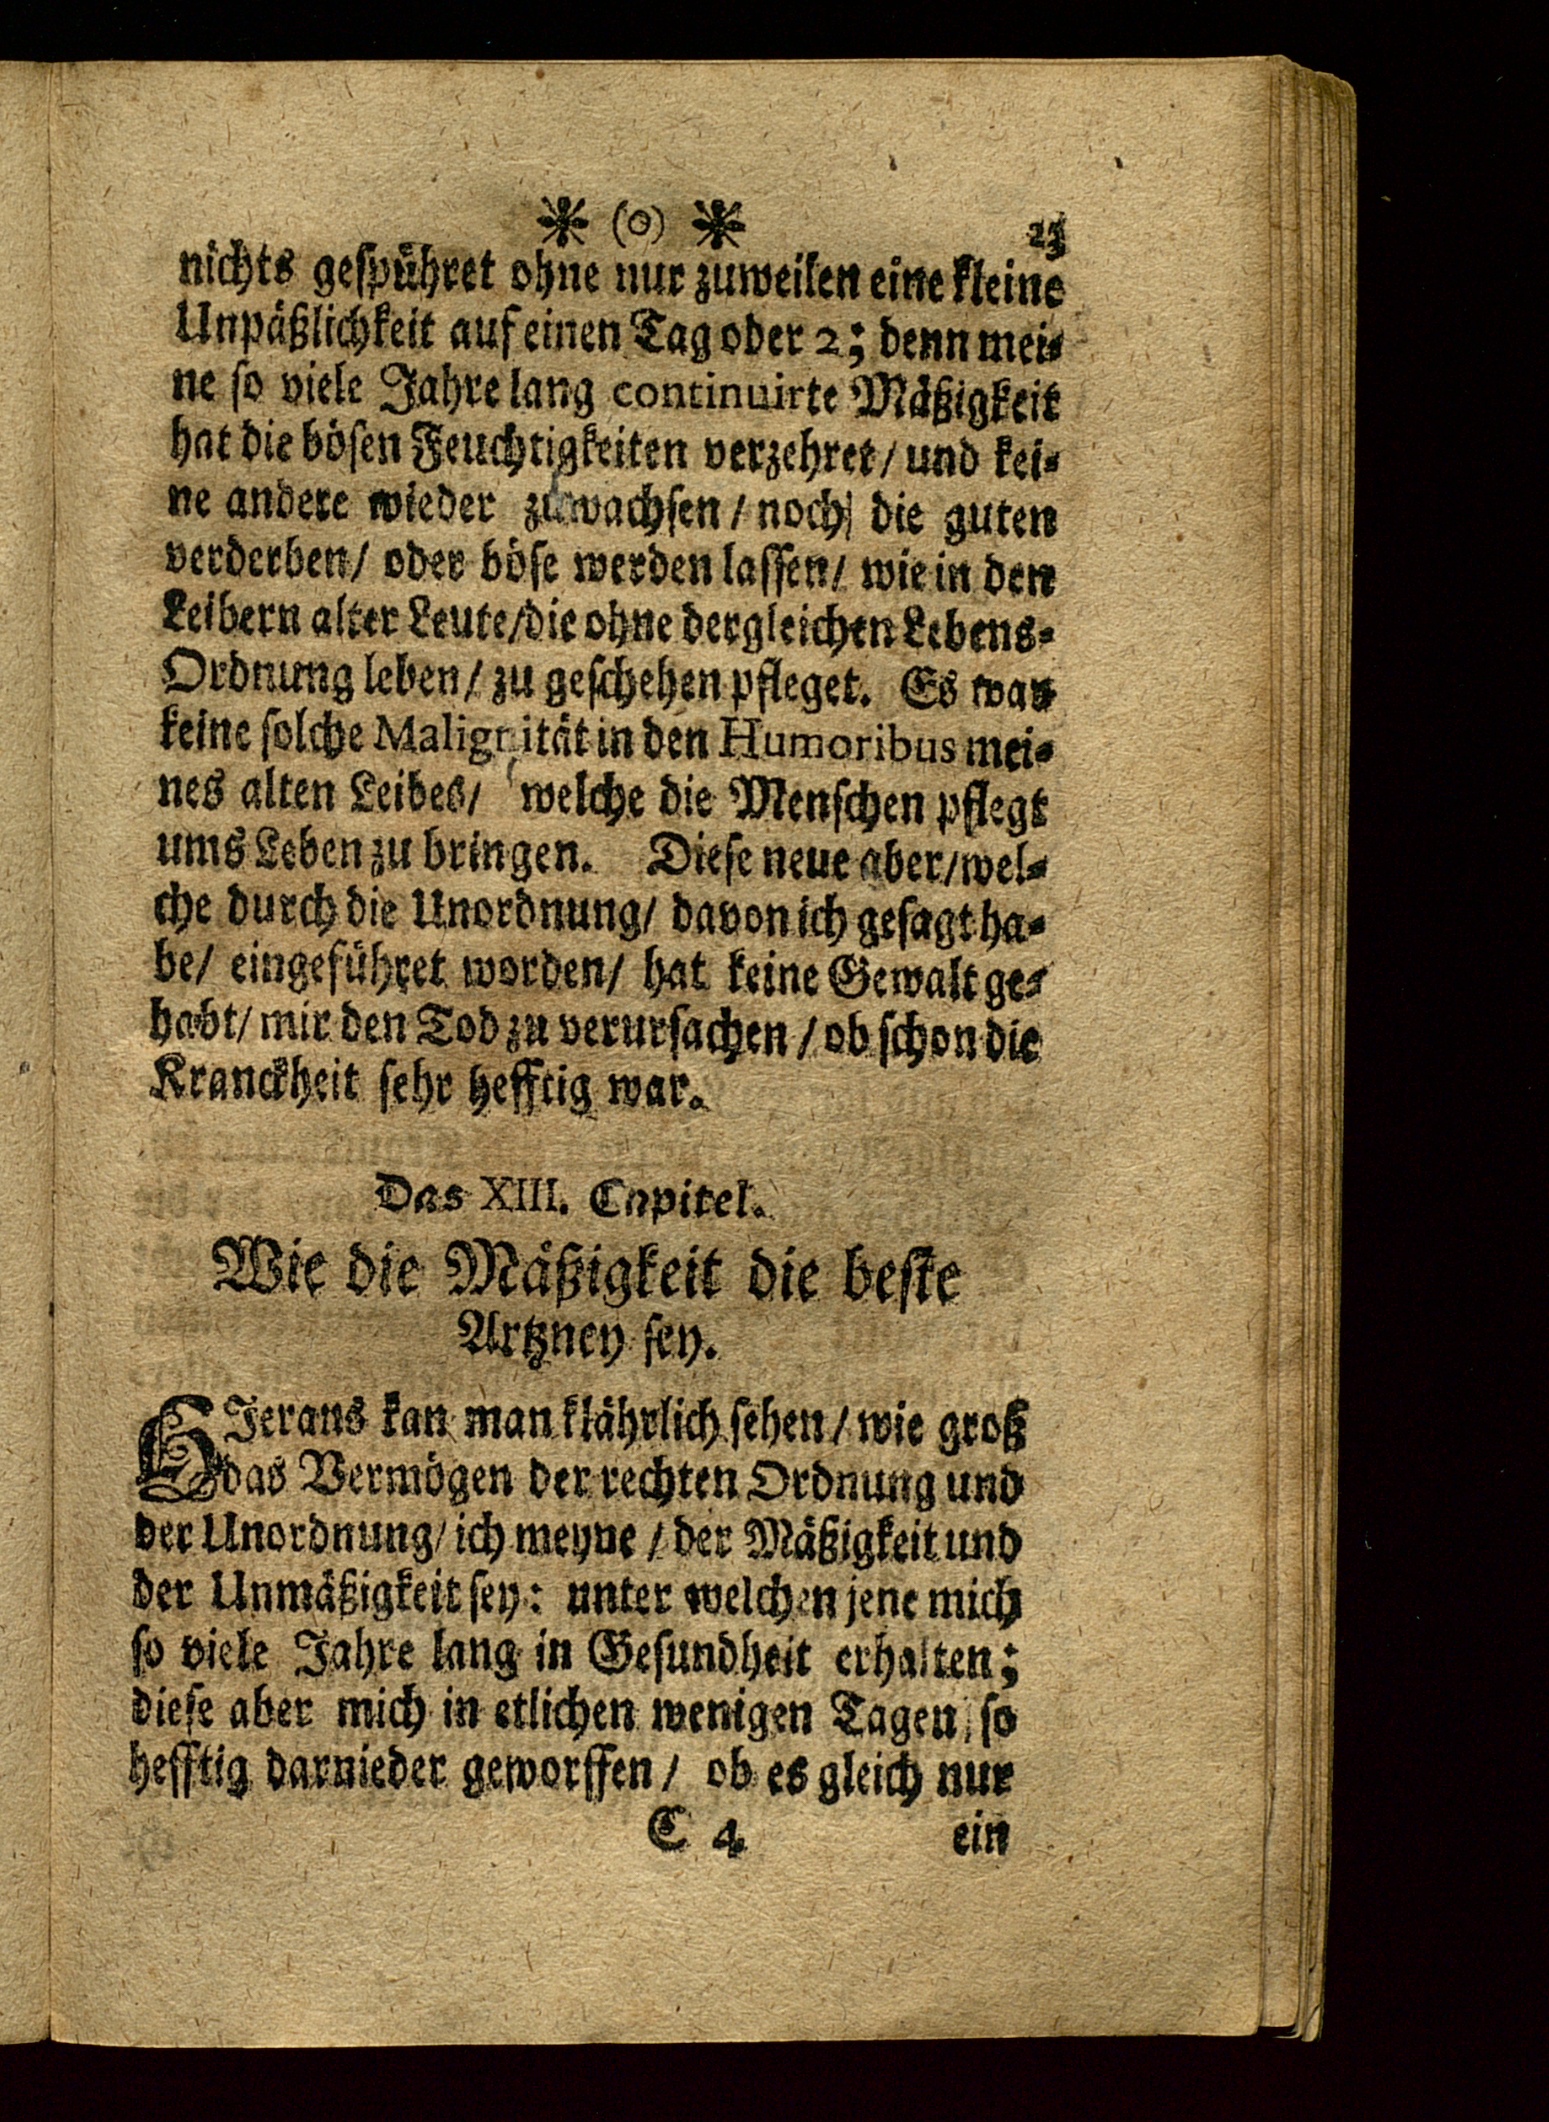 * (o) * 23
nichts gespühret ohne nur zuweilen eine kleine
Unpäßlichkeit auf einen Tag oder 2; denn mei-
ne so viele Jahre lang continuirte Mäßigkeit
hat die bösen Feuchtigkeiten verzehret/ und kei-
ne andere wieder zuwachsen/ noch die guten
verderben/ oder böse werden lassen/ wie in den
Leibern alter Leute/die ohne dergleichen Lebens-
Ordnung leben/ zu geschehen pfleget. Es war
keine solche Malignität in den Humoribus mei-
nes alten Leibes/ welche die Menschen pflegt
ums Leben zu bringen. Diese neue aber/wel-
che durch die Unordnung/ davon ich gesagt ha-
be/ eingeführet worden/ hat keine Gewalt ge-
habt/ mir den Tod zu verursachen/ ob schon die
Kranckheit sehr hefftig war.
Das XIII. Capitel.
Wie die Mäßigkeit die beste
Artzney sey.
HJeraus kan man klährlich sehen/ wie groß
das Vermögen der rechten Ordnung und
der Unordnung/ ich meyne/ der Mäßigkeit und
der Unmäßigkeit sey: unter welchen jene mich
so viele Jahre lang in Gesundheit erhalten;
diese aber mich in etlichen wenigen Tagen so
hefftig darnieder geworffen/ ob es gleich nur
C 4 ein